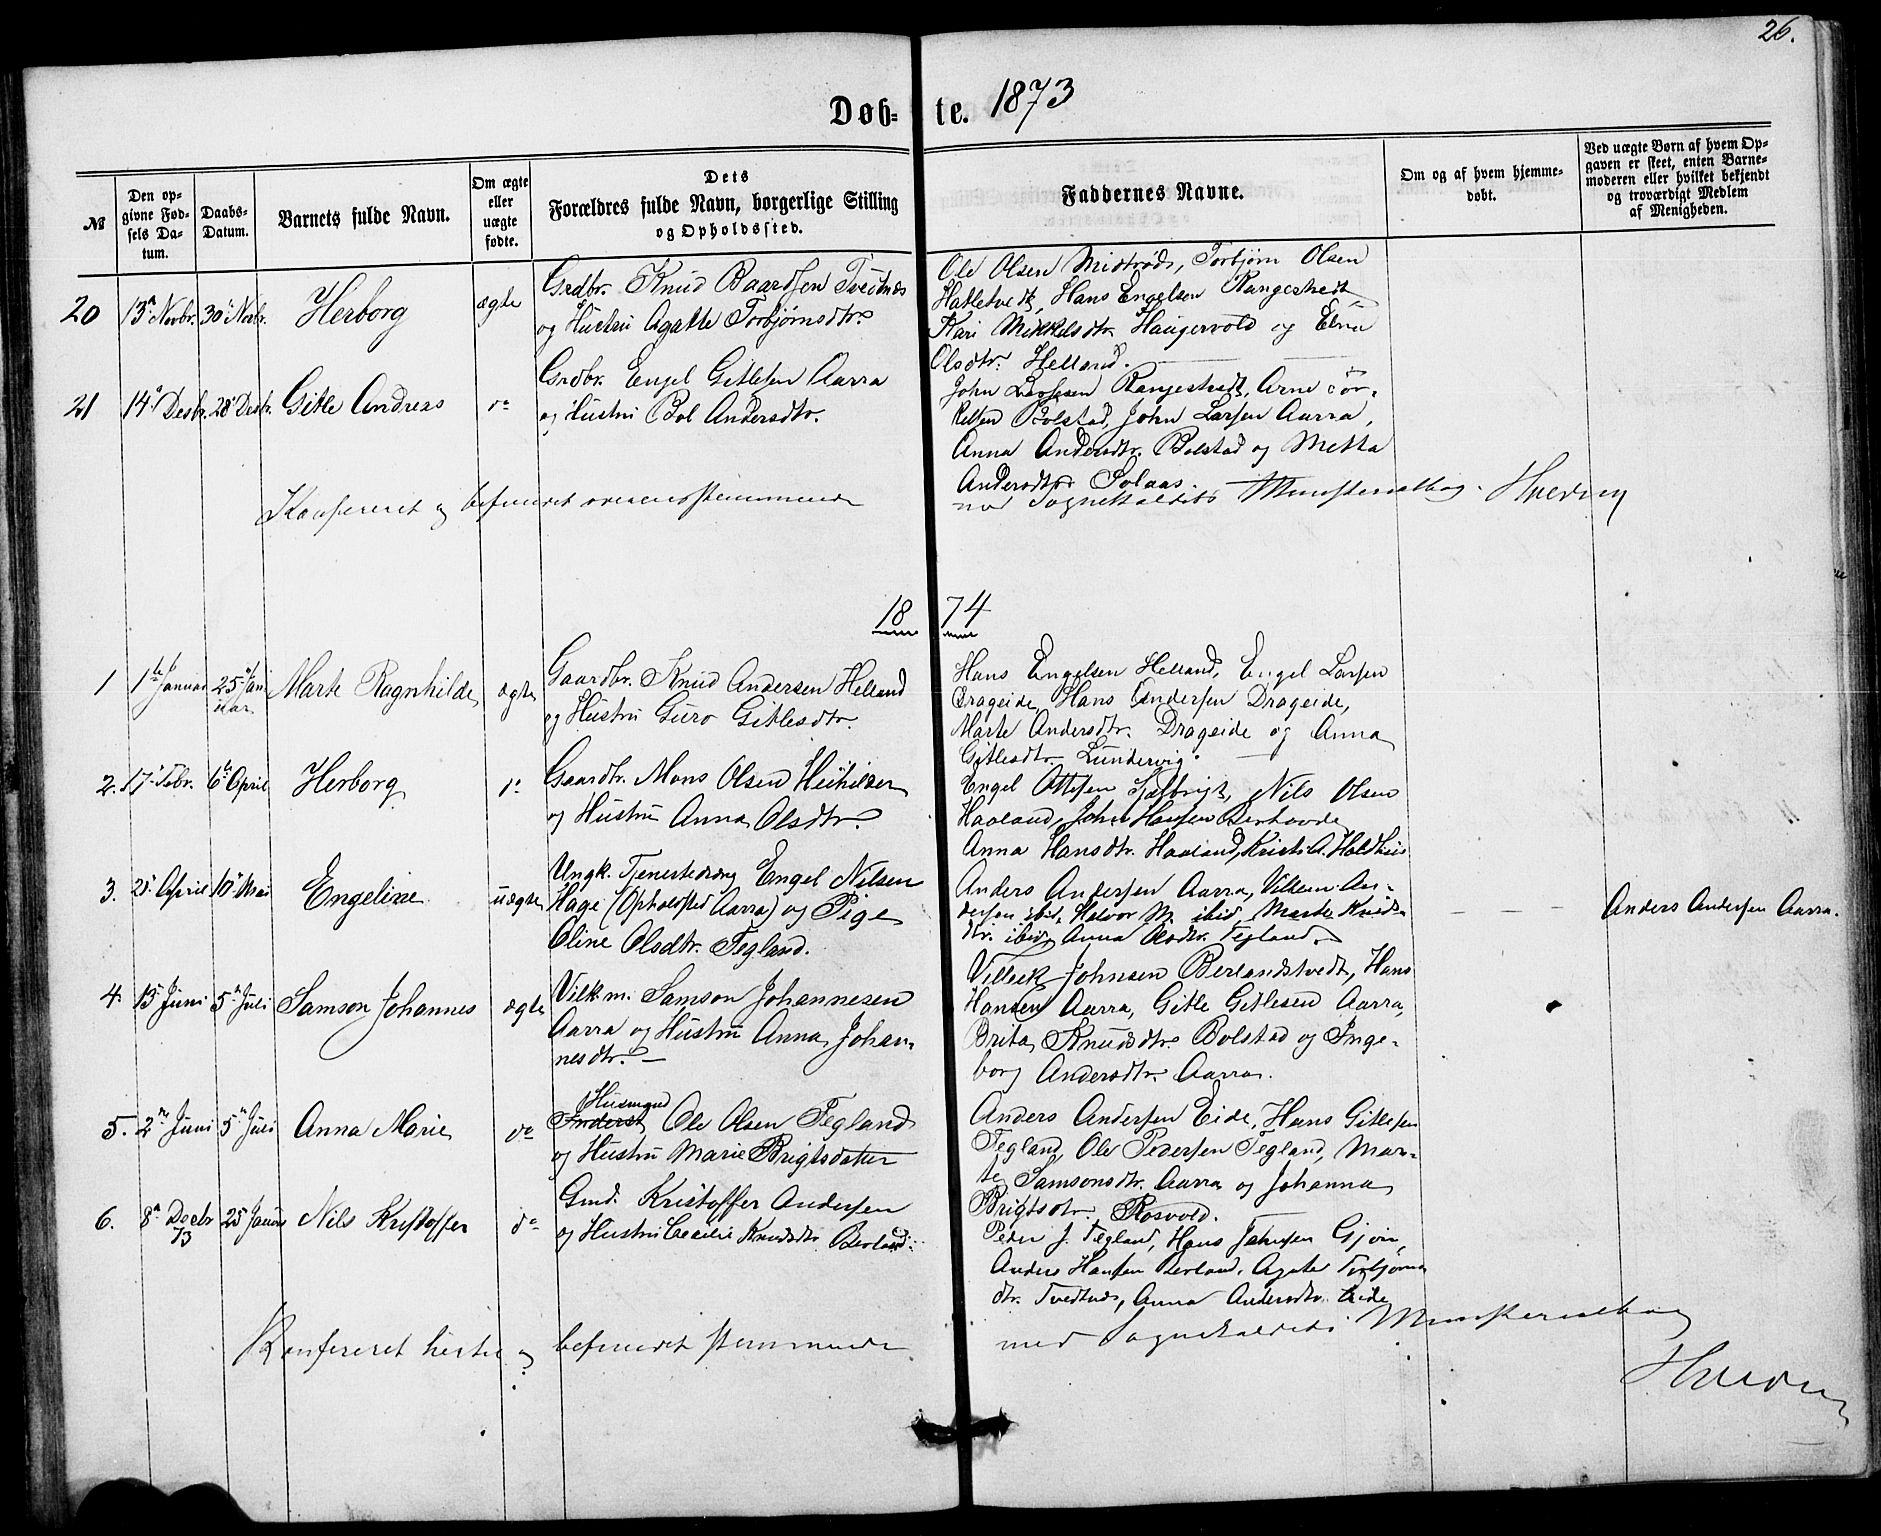 26.
Døb= te. 1873
№
Den op-
givne Fød-
sels Da-
tum.
Daabs-
Datum.
Barnets fulde Navn.
Om ægte
eller
uægte
fødte.
Dets
Forældres fulde Navn, borgerlige Stilling
og Opholdssted.
Faddernes Navne.
Om og af hvem hjemme-
døbt.
Ved uægte Børn af hvem Op-
gaven er skeet, enten Barne-
moderen eller hvilket bekjendt
og troværdigt Medlem
af Menigheden.
20 13de Novbr. 30 Novbr. Herborg ægte
Grdbr. Knud Baardsen Tveitnæs
og Hustru Agatte Torbjørnsdtr.
Ole Olsen Midtrød, Torbjørn Olsen
Hatletvedt, Hans Engelsen Rangestvedt
Kari Mikkelsdtr. Haugervold og Elna
Olsdtr. Helland.
21 14 Desbr. 28 Desbr. Gitle Andreas do
Grdbr. Engel Gitlesen Aarra
og Hustru Bol Andersdtr.
John Rangestvedt, Arne Tor-
kelsen Bolstad, John Larsen Aarra,
Anna Andersdtr. Bolstad og Metta
Andersdtr Solaas.
Konfereret og befundet overensstemmende
med Sognekaldets Ministerialbog.
1874
1 1ste Januar 25 Jan-
uar. Marte Ragnhilde ægte
Gaardbr. Knud Andersen Helland
og Hustru Guro Gitlesdtr.
Hans Engelsen Helland, Engel Larsen
Drageide, Hans Andersen Drageide,
Marte Andersdtr. Drageide og Anna
Gitlesdtr. Lundervig.
2. 17 Febr. 6te April Herborg do
Gaardbr. Mons Olsen
og Hustru Anna Olsdtr.
Engel Ottesen Nils Olsen
Haaland, John Hansen
Anna Hansdtr. Haaland, Kristi A. Holdhus
3. 25 April 10 Mai Engeline uægte
Ungk. Tjenestedreng Engel Nilsen
Hage (Opholdsted Aarra) og Pige
Oline Olsdtr. Tegland.
Anders Andersen Aarra, Villum An-
dersen ibid, Halvor M. ibid, Marte Knuds-
dtr. ibid, Anna Olsdtr. Tegland
Anders Andersen Aarra.
4. 13 Juni 5 Juli Samson Johannes ægte
Vilk.m. Samson Johannesen
Aarra og Hustru Anna Johan-
nesdtr.
Villeik Johnsen Berlandstvedt, Hans
Hansen Aarra, Gitle Gitlesen Aarra,
Brita Knudsdtr. Bolstad og Inge-
borg Andersdtr. Aarra.
5. 2 Juni 5 Juli Anna Marie do
Husmand
Inderst Ole Olsen Tegland
og Hustru Marie Brigtsdatter
Anders Andersen Eide, Hans Gitlesen
Tegland, Ole Pedersen Tegland, Mar-
te Samsonsdtr. Aarra og Johanna
Brigtsdtr. Rosvold.
6. 8 Decbr 73 25 Januar Nils Kristoffer do
Gmd. Kristoffer Andersen
og Hustru Cecilie Knudsdtr Berland.
Peder J. Tegland, Hans Johnsen
Anders Hansen Berland, Agate Torbjørns
dtr. Tvedtnæs, Anna Andersdtr. Eide
Konfereret hertil og befundet stemmende
med Sognekaldets Ministerialbog